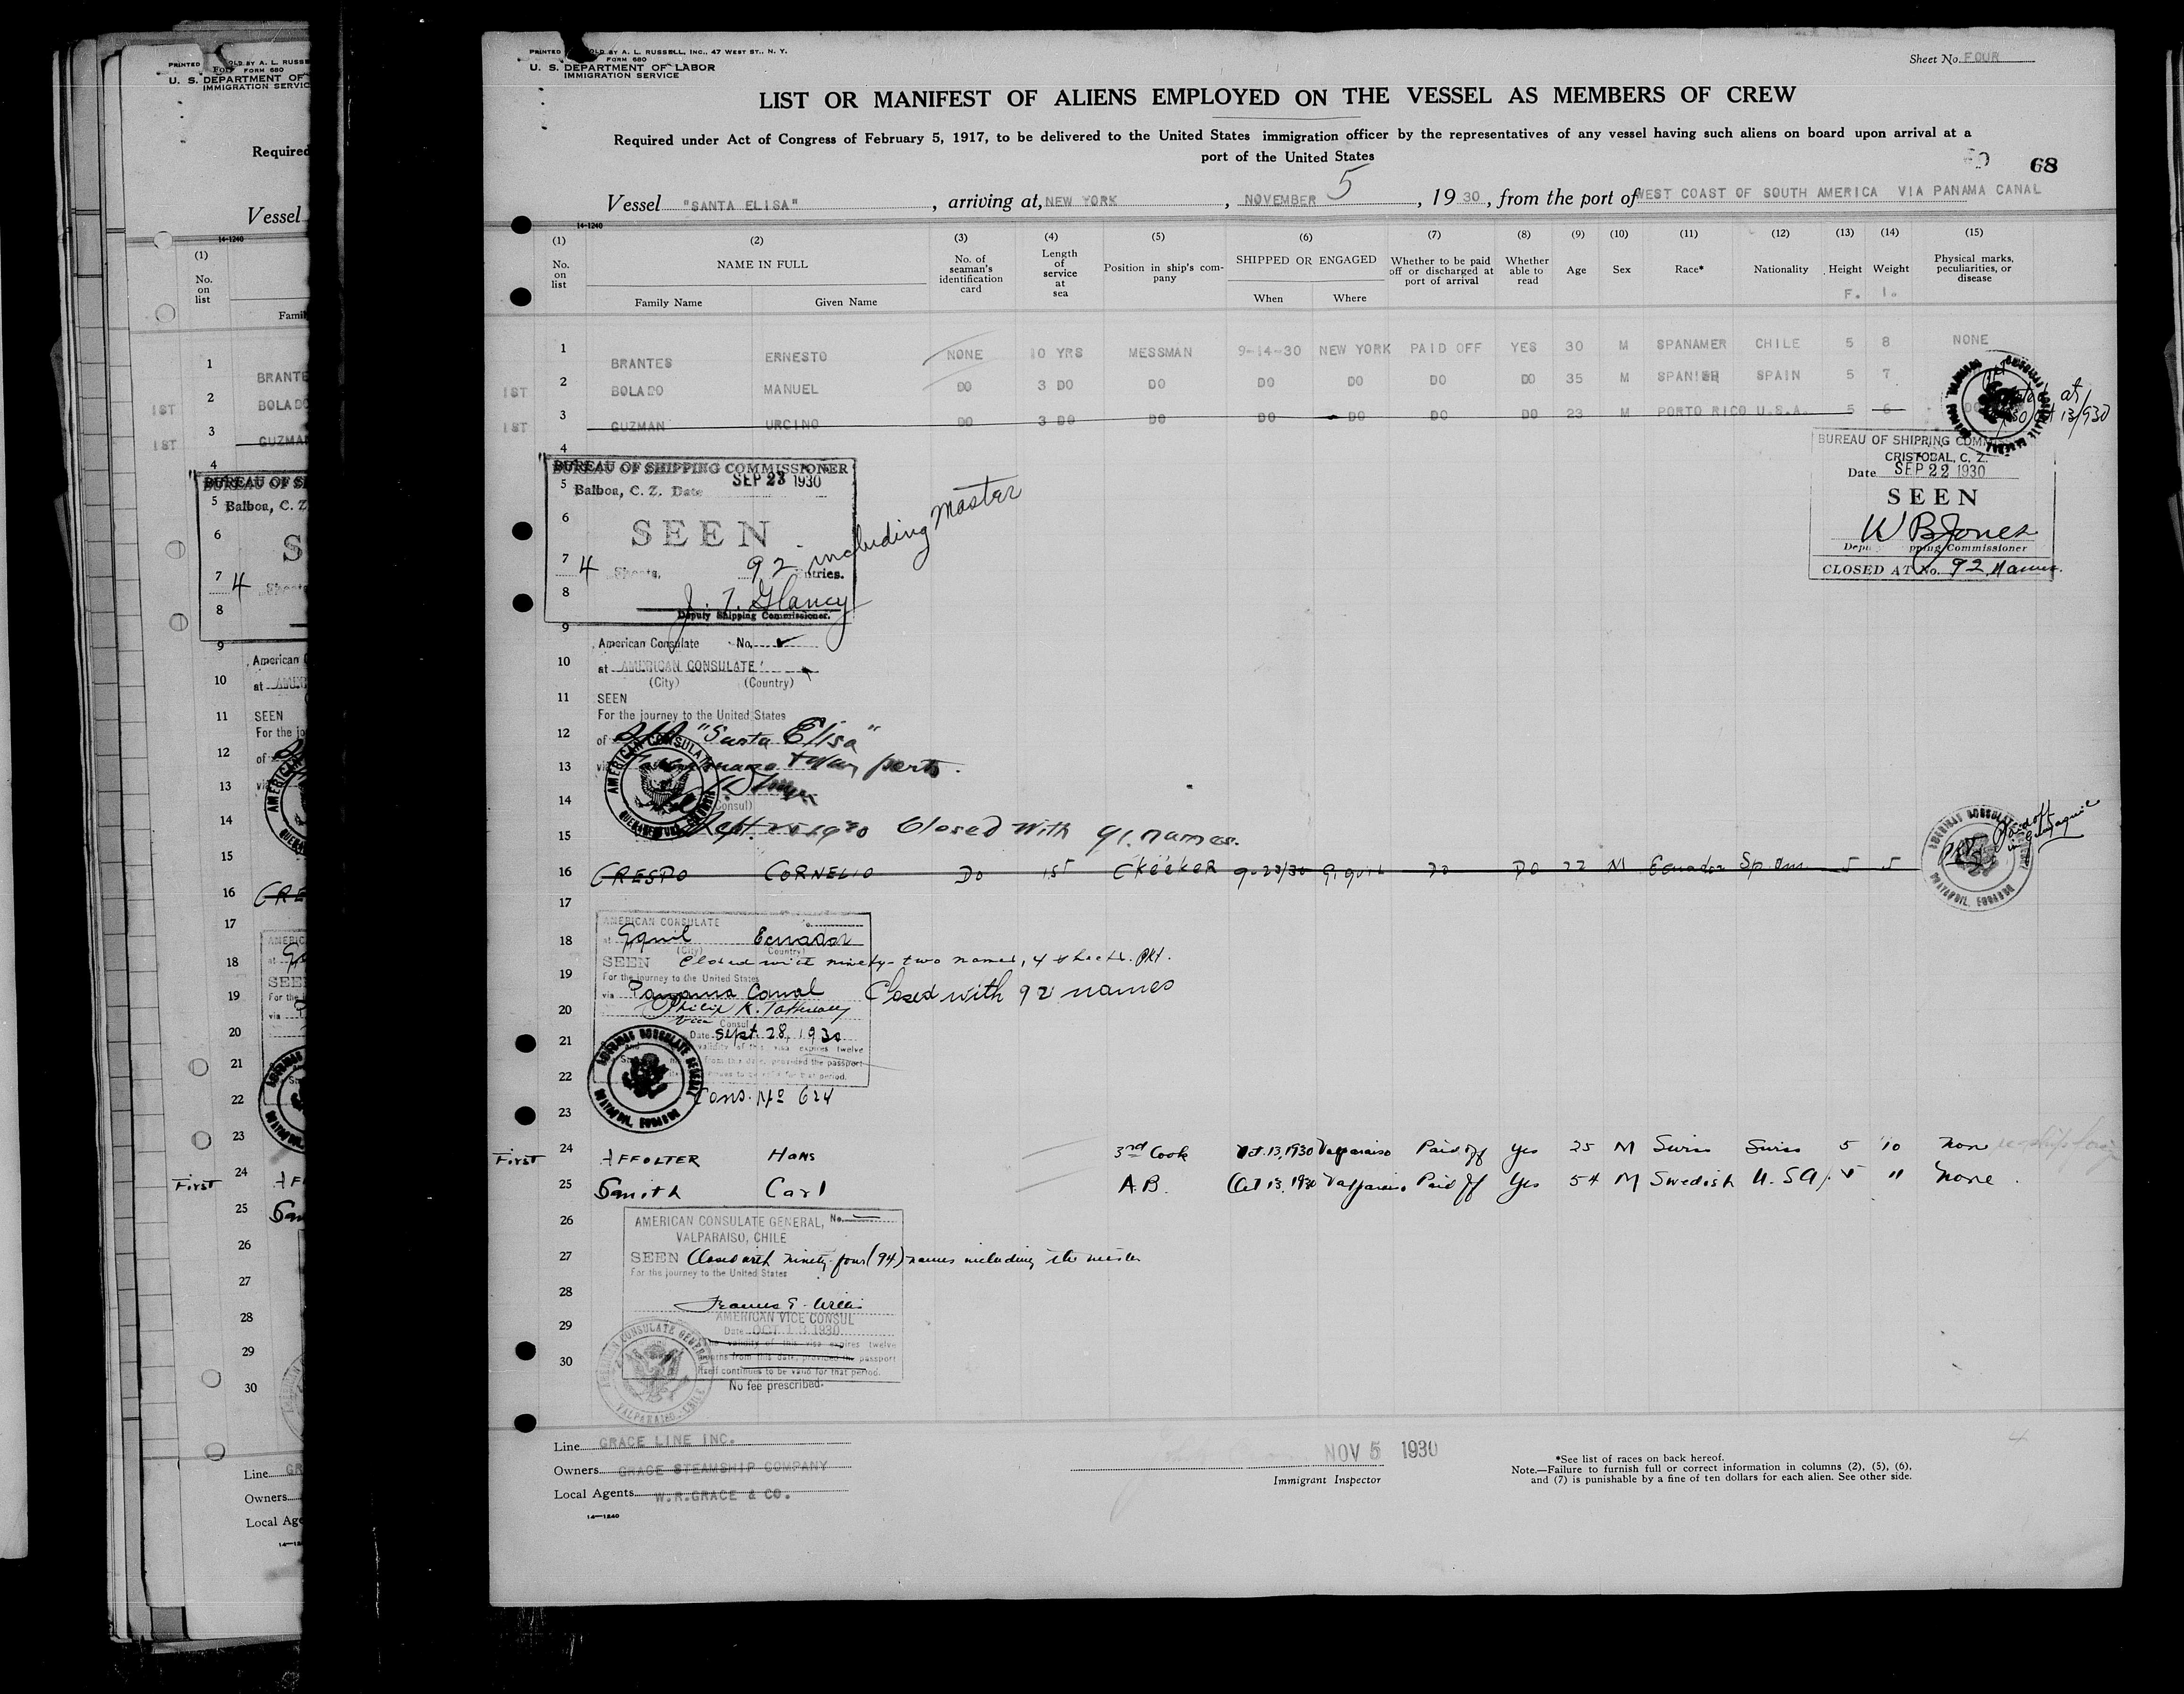 PRINTED
OLD BY A. L. RUSSELL, INC., 47 WEST ST., N. Y.
FORM 680
U. S. DEPARTMENT OF LABOR
IMMIGRATION SERVICE
Sheet No. FOUR
LIST OR MANIFEST OF ALIENS EMPLOYED ON THE VESSEL AS MEMBERS OF CREW
Required under Act of Congress of February 5, 1917, to be delivered to the United States immigration officer by the representatives of any vessel having such aliens on board upon arrival at a
port of the United States
68
Vessel "SANTA ELISA", arriving at, NEW YORK, NOVEMBER 5, 1930, from the port of WEST COAST OF SOUTH AMERICA VIA PANAMA CANAL
14-1240
(1) (2) (3) (4) (5) (6) (7) (8) (9) (10) (11) (12) (13) (14) (15)
No. on list NAME IN FULL No. of seaman's identification card Length of service at sea Position in ship's company SHIPPED OR ENGAGED Whether to be paid off or discharged at port of arrival Whether able to read Age Sex Race* Nationality Height Weight Physical marks, peculiarities, or disease
Family Name Given Name When Where F. I.
1 BRANTES ERNESTO NONE 10 YRS MESSMAN 9-14-30 NEW YORK PAID OFF YES 30 M SPANAMER CHILE 5 8 NONE
1ST 2 BOLADO MANUEL DO 3 DO DO DO DO DO DO 35 M SPANISH SPAIN 5 7
1ST 3 GUZMAN URCINO DO 3 DO DO DO DO DO DO 23 M PORTO RICO U.S.A. 5 6
at
13/930
4
BUREAU OF SHIPPING COMMISSIONER
5 Balboa, C. Z. Date SEP 23 1930
6 SEEN
7 4 Sheets. 92 including Master
8 J. J. Glancy
Deputy Shipping Commissioner.
BUREAU OF SHIPPING
CRISTOBAL, C. Z.
Date SEP 22 1930
SEEN
W B Jones
Commissioner
CLOSED AT No. 92 Names.
9 American Consulate No.
10 at AMERICAN CONSULATE
(City) (Country)
11 SEEN
For the journey to the United States
12 of "Santa Elisa"
13 via ports.
AMERICAN CONSULATE
14 (Consul)
15 Sept. 1930 Closed with 91 names.
16 CRESPO CORNELIO DO 1ST CHECKER 9-23/30 DO DO 22 M Ecuador Sp Am 5 5
Guayaquil
17
AMERICAN CONSULATE
18 at Gquil Ecuador
(City) (Country)
SEEN Closed with ninety-two names, 4 sheets. PKT.
19 For the journey to the United States
via Panama Canal Closed with 92 names
20 Philip K.
Vice Consul
21 Date Sept. 28, 1930
validity of this visa expires twelve
from this date, provided the passport
22 for that period.
Cons. No 624
23
First 24 AFFOLTER Hans 3rd Cook Oct. 13, 1930 Valparaiso Paid off Yes 25 M Swiss Swiss 5 10 None
25 Smith Carl A.B. Oct 13, 1930 Valparaiso Paid off Yes 54 M Swedish U.S.A. 5 " None.
26 AMERICAN CONSULATE GENERAL, No.
VALPARAISO, CHILE
27 SEEN Closed with ninety four (94) names including the master
For the journey to the United States
28 Frances E. Willis
AMERICAN VICE CONSUL
29 Date OCT 13 1930
The validity of this visa expires twelve
months from this date, provided the passport
30 itself continues to be valid for that period.
No fee prescribed.
Line GRACE LINE INC.
Owners GRACE STEAMSHIP COMPANY
Local Agents W.R.GRACE & CO.
14-1240
NOV 5 1930
Immigrant Inspector
*See list of races on back hereof.
Note.—Failure to furnish full or correct information in columns (2), (5), (6),
and (7) is punishable by a fine of ten dollars for each alien. See other side.